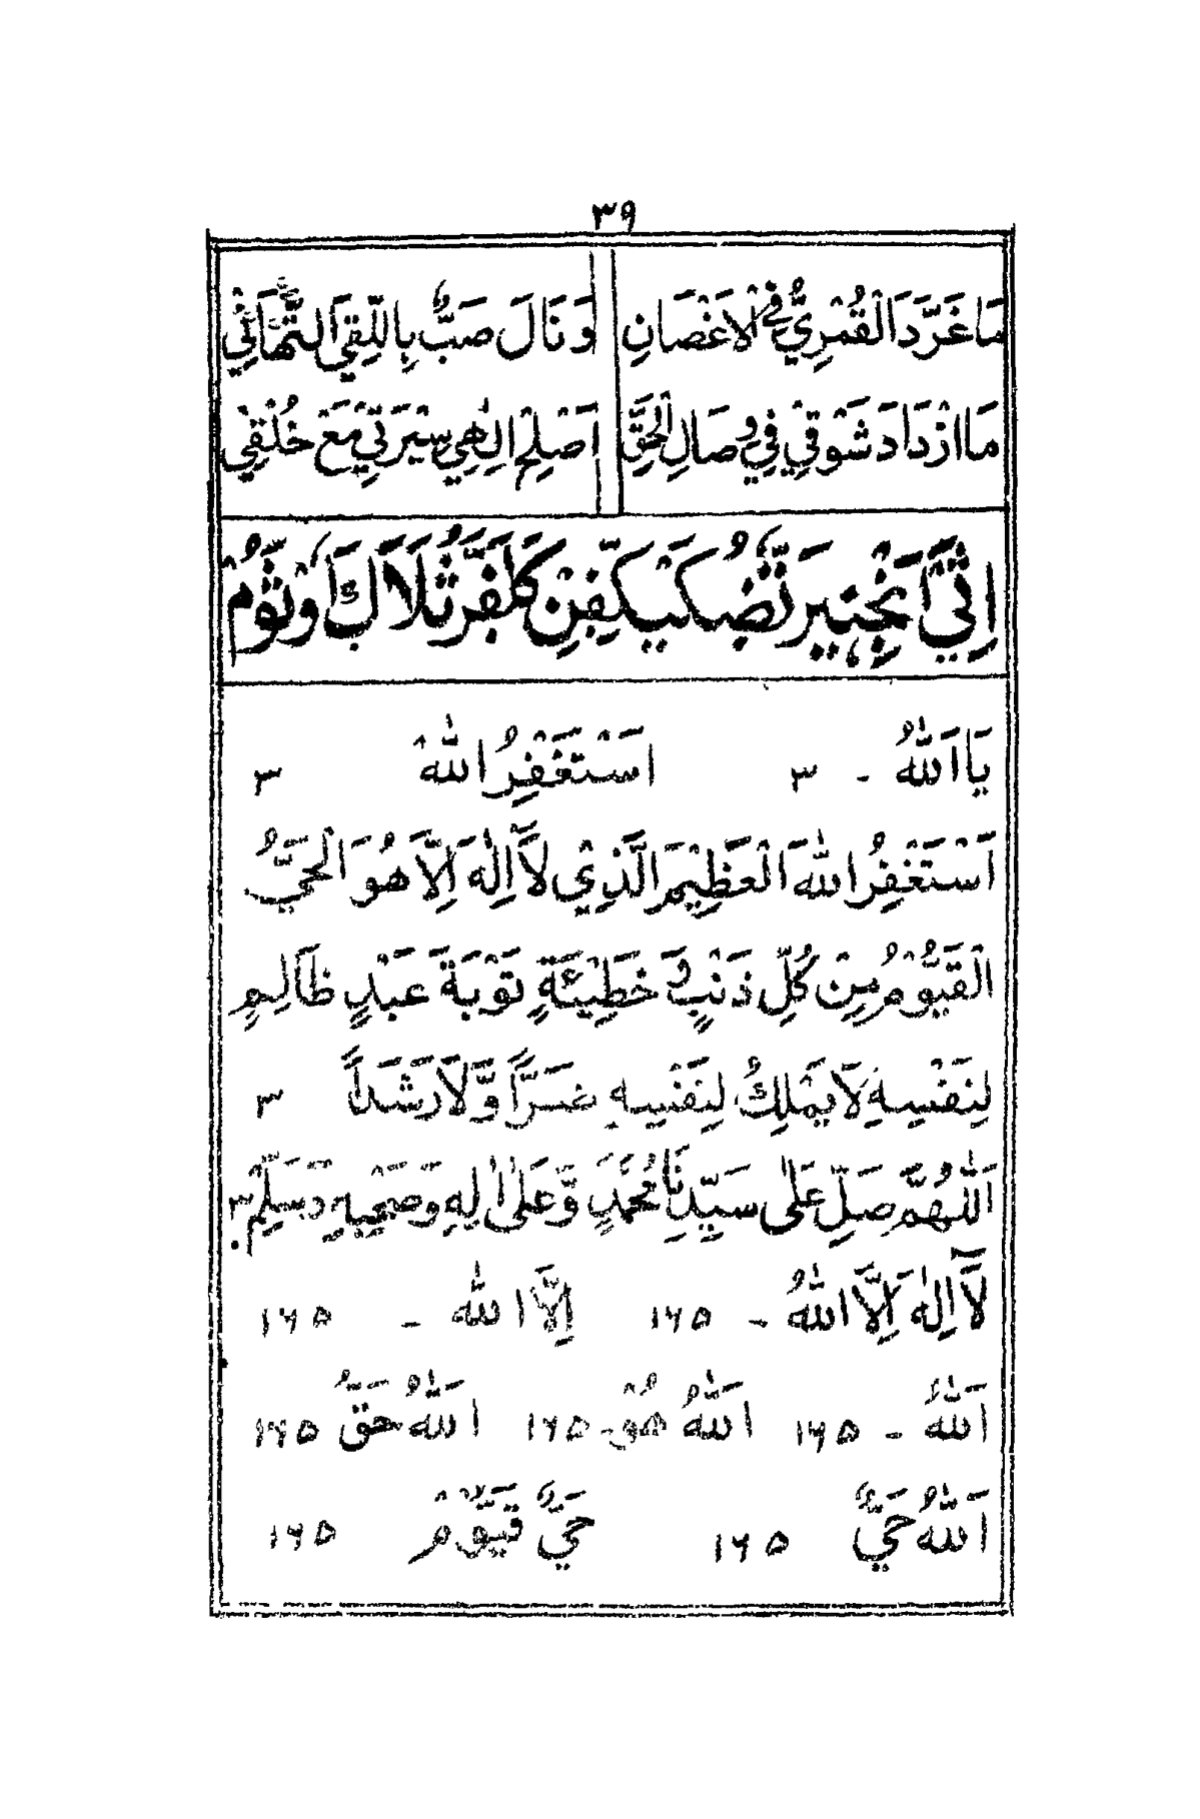 ٣٩
مَا غَرَّدَ الْقُمْرِيُّ فِي الْاَغْصَانِ وَنَالَ صَبٌّ بِاللِّقَى التَّهَانِيْ
مَا ازْدَادَ شَوْقِيْ فِيْ وِصَالِ الْحَقِّ اَصْلِحْ اِلٰهِيْ سِيْرَتِيْ مَعْ خُلُقِيْ
يَا اَللّٰهُ - ٣ اَسْتَغْفِرُ اللّٰهْ ٣
اَسْتَغْفِرُ اللّٰهَ الْعَظِيْمَ الَّذِيْ لَآ اِلٰهَ اِلَّا هُوَ الْحَيُّ
الْقَيُّوْمُ مِنْ كُلِّ ذَنْبٍ وَّخَطِيْئَةٍ تَوْبَةَ عَبْدٍ ظَالِمٍ
لِنَفْسِهٖ لَا يَمْلِكُ لِنَفْسِهٖ ضَرًّا وَّلَا رَشَدًا ٣
اَللّٰهُمَّ صَلِّ عَلٰى سَيِّدِنَا مُحَمَّدٍ وَّعَلٰى اٰلِهٖ وَصَحْبِهٖ وَسَلِّمْ ٣
لَآ اِلٰهَ اِلَّا اللّٰهُ - ١٦٥ اِلَّا اللّٰه - ١٦٥
اَللّٰهُ - ١٦٥ اَللّٰهُ هُوْ - ١٦٥ اَللّٰهُ حَقٌّ ١٦٥
اَللّٰهُ حَيٌّ ١٦٥ حَيٌّ قَيُّوْمْ ١٦٥